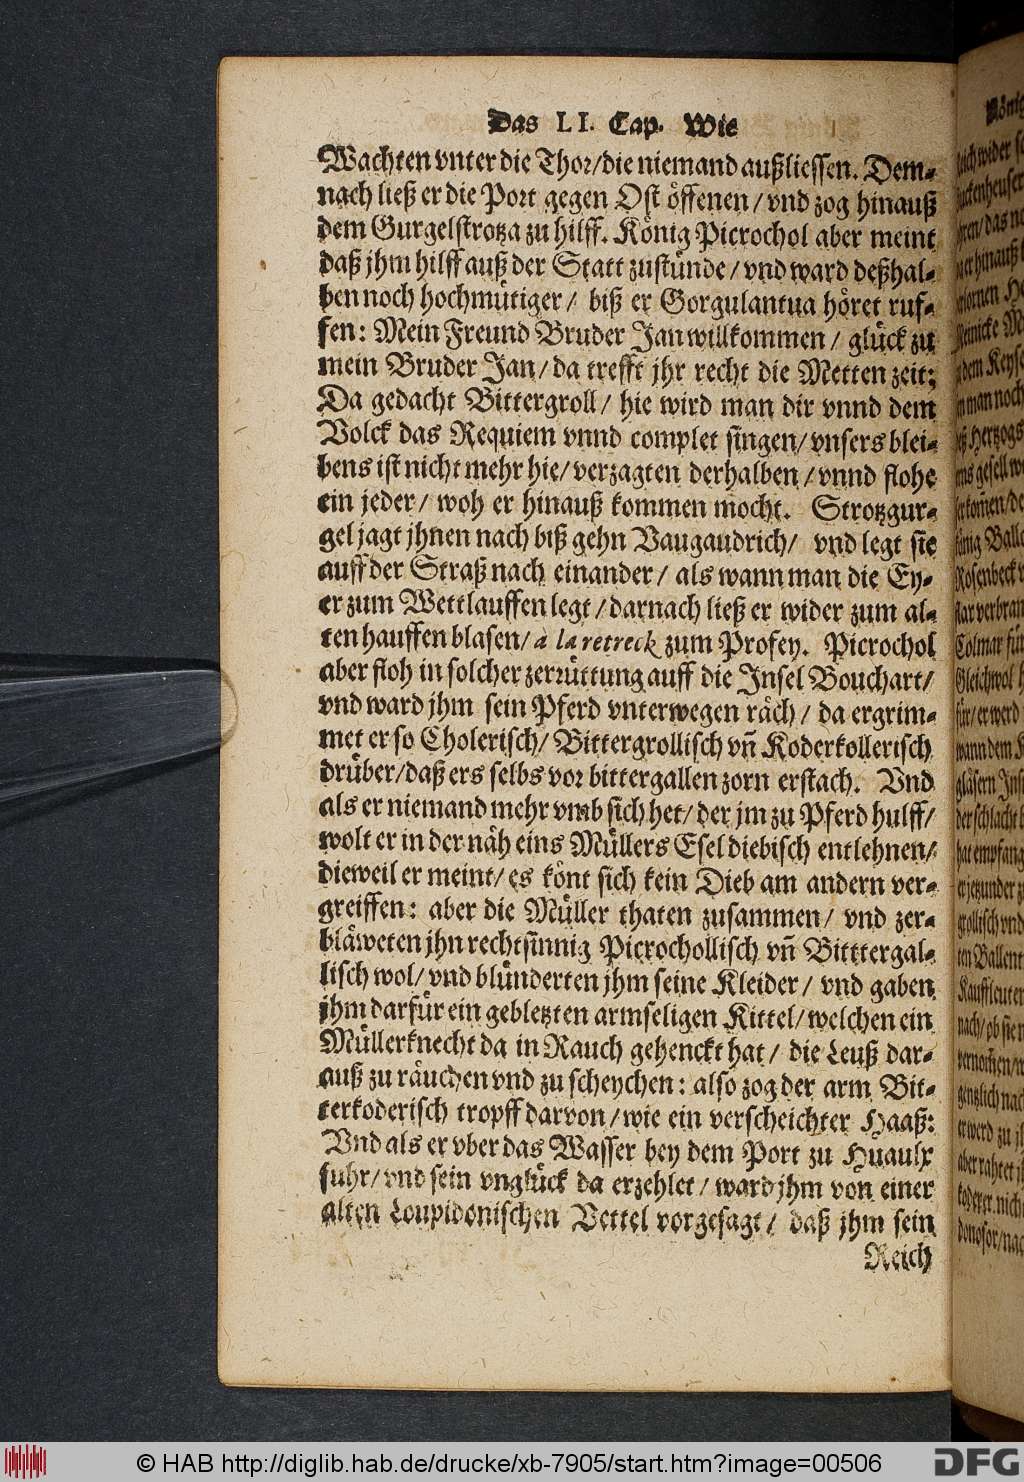 Das LI. Cap. Wie
Wachten vnter die Thor/die niemand außliessen. Dem-
nach ließ er die Port gegen Ost öffenen/ vnd zog hinauß
dem Gurgelstrotza zu hilff. König Picrochol aber meint
daß jhm hilff auß der Statt zustünde/ vnd ward deßhal-
ben noch hochmütiger/ biß er Gorgulantua höret ruf-
fen: Mein Freund Bruder Jan willkommen/ glück zu
mein Bruder Jan/ da trefft jhr recht die Metten zeit;
Da gedacht Bittergroll/ hie wird man dir vnnd dem
Volck das Requiem vnnd complet singen/ vnsers blei-
bens ist nicht mehr hie/ verzagten derhalben/ vnnd flohe
ein jeder/ woh er hinauß kommen mocht. Strotzgur-
gel jagt jhnen nach biß gehn Vaugaudrich/ vnd legt sie
auff der Straß nach einander/ als wann man die Ey-
er zum Wettlauffen legt/ darnach ließ er wider zum al-
ten hauffen blasen/ à la retreck zum Profey. Picrochol
aber floh in solcher zerrüttung auff die Insel Bouchart/
vnd ward jhm sein Pferd vnterwegen räch/ da ergrim-
met er so Cholerisch/ Bittergrollisch vñ Koderkollerisch
drüber/daß ers selbs vor bittergallen zorn erstach. Vnd
als er niemand mehr vmb sich het/ der jm zu Pferd hulff/
wolt er in der näh eins Müllers Esel diebisch entlehnen/
dieweil er meint/ es könt sich kein Dieb am andern ver-
greiffen: aber die Müller thaten zusammen/ vnd zer-
bläweten jhn rechtsinnig Picrochollisch vñ Bitttergal-
lisch wol/ vnd blünderten jhm seine Kleider/ vnd gaben
jhm darfür ein gebletzten armseligen Kittel/ welchen ein
Müllerknecht da in Rauch gehenckt hat/ die Leuß dar-
auß zu räuchen vnd zu scheychen: also zog der arm Bit-
terkoderisch tropff darvon/ wie ein verscheichter Haaß:
Vnd als er vber das Wasser bey dem Port zu Huaulx
fuhr/ vnd sein vnglück da erzehlet/ ward jhm von einer
alten Loupidonischen Vettel vorgesagt/ daß jhm sein
Reich
© HAB http://diglib.hab.de/drucke/xb-7905/start.htm?image=00506
DFG